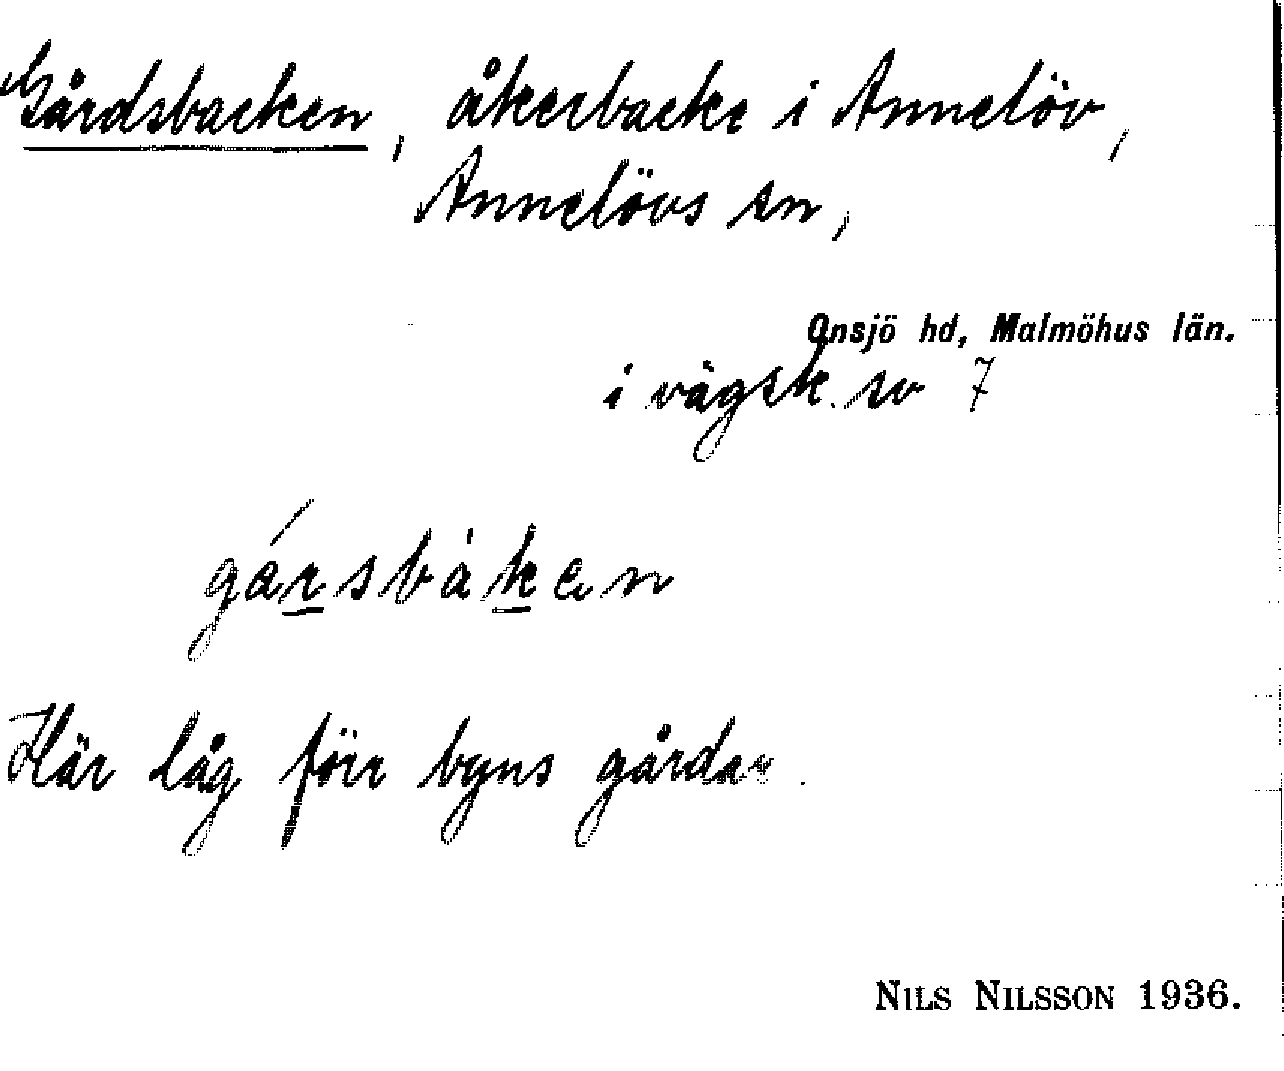 Gårdsbacken, åkerbacke i Annelöv,
Annelövs sn,
Onsjö hd, Malmöhus län.
i vägsk. sv 7
gársbàken
Här låg förr byns gårdar.
NILS NILSSON 1936.